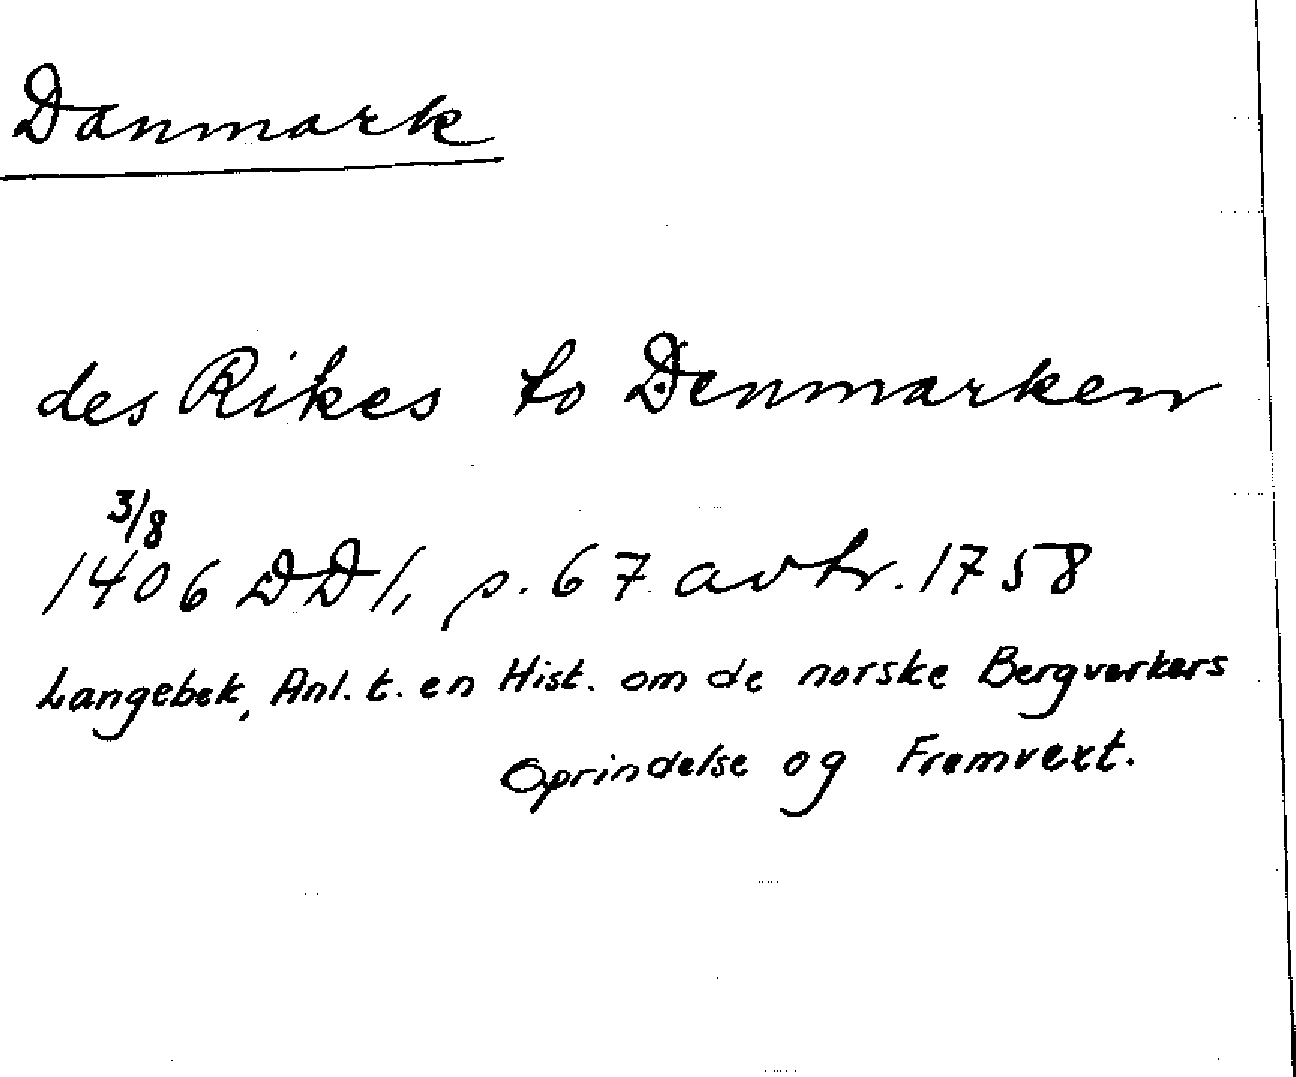 Danmark
des Rikes to Denmarken
3/8
1406 DD1, s. 67 avtr. 1758
Langebek, Anl. t. en Hist. om de norske Bergverkers
Oprindelse og Fremvext.